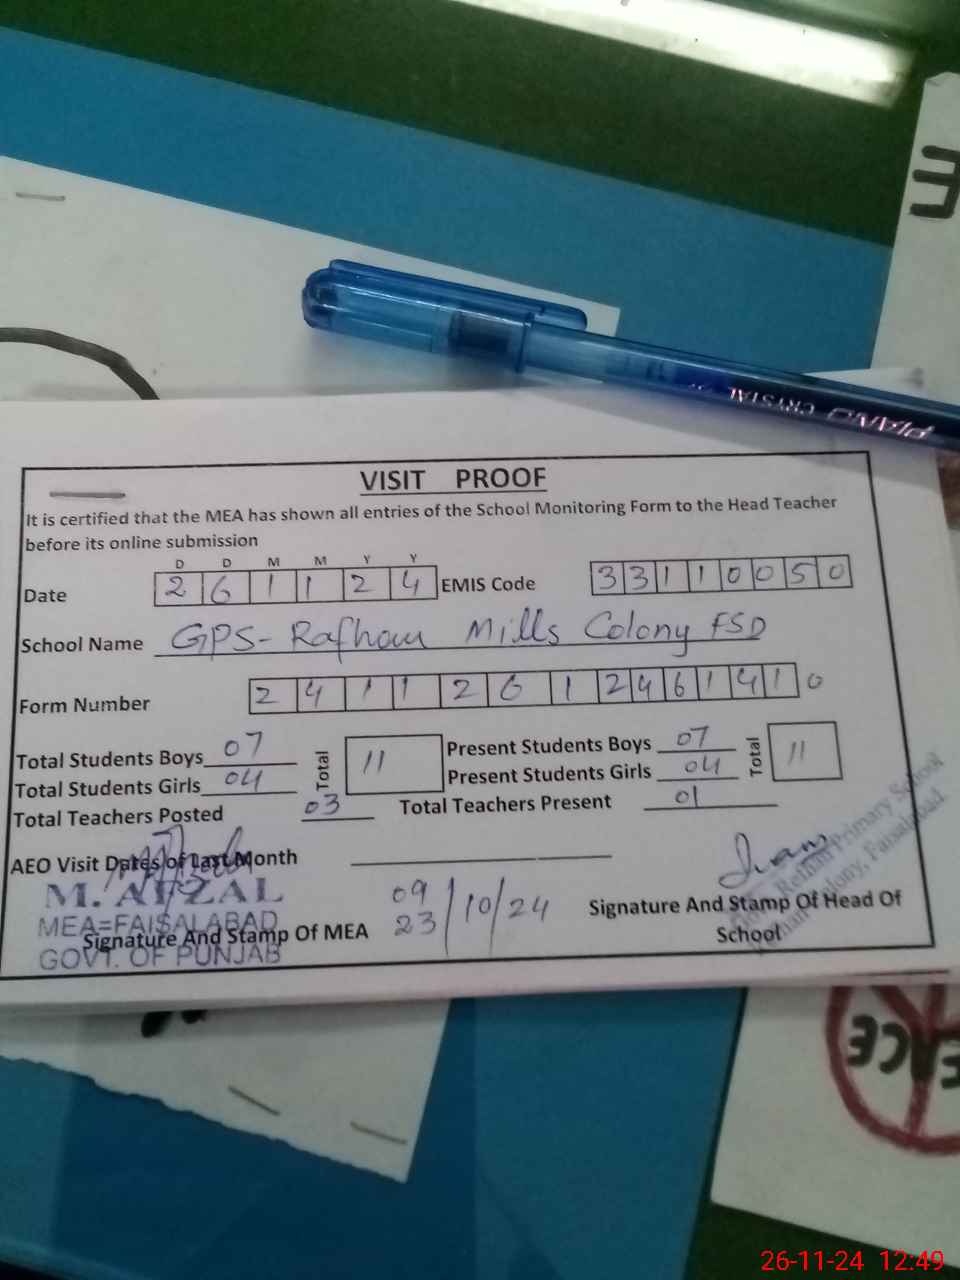 PIANO CRYSTAL
VISIT PROOF
It is certified that the MEA has shown all entries of the School Monitoring Form to the Head Teacher
before its online submission
D D M M Y Y
Date 2 6 1 1 2 4 EMIS Code 3 3 1 1 0 0 5 0
School Name GPS- Rafhan Mills Colony FSD
Form Number 2 4 1 1 2 6 1 2 4 6 1 4 1 0
Total Students Boys 07 Total 11 Present Students Boys 07 Total 11
Total Students Girls 04 Present Students Girls 04
Total Teachers Posted 03 Total Teachers Present 01
AEO Visit Dates of Last Month
M. AFZAL
MEA=FAISALABAD
GOVT. OF PUNJAB
Signature And Stamp Of MEA
09
23 /10/24
Signature And Stamp Of Head Of
School
Govt. Rafhan Primary School
Rafhan Colony, Faisalabad.
26-11-24 12:49